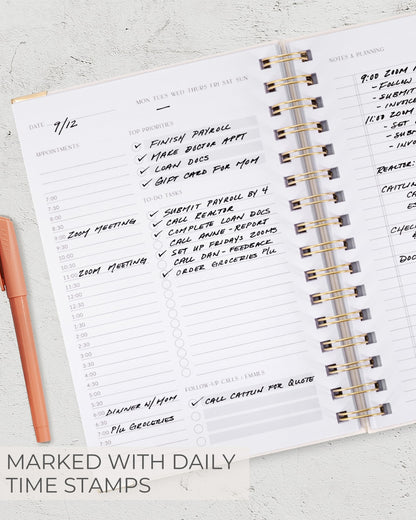 NOTES & PLANNING
MON TUES WED THURS FRI SAT SUN
DATE 9/12
APPOINTMENTS
TOP PRIORITIES
✓ FINISH PAYROLL
✓ MAKE DOCTOR APPT
✓ LOAN DOCS
✓ GIFT CARD FOR MOM
TO-DO TASKS
✓ SUBMIT PAYROLL BY 4
✓ CALL REACTOR
✓ COMPLETE LOAN DOCS
CALL ANNE - REPORT
✓ SET UP FRIDAYS ZOOMS
CALL DAN - FEEDBACK
✓ ORDER GROCERIES P/U
7:00
7:30
8:00
8:30
9:00 ZOOM MEETING
9:30
10:00
10:30
11:00 ZOOM MEETING
11:30
12:00
12:30
1:00
1:30
2:00
2:30
3:00
3:30
4:00
4:30
5:00
5:30
6:00 DINNER W/ MOM
6:30
7:00 P/U GROCERIES
7:30
FOLLOW-UP CALLS / EMAILS
✓ CALL CAITLIN FOR QUOTE
9:00 ZOOM
- FOLLOW
- SUBMIT
INVOIC
11:00 ZOOM
- SET
- SUB
- INVO
REALTOR:
CAITLIN
MARKED WITH DAILY
TIME STAMPS